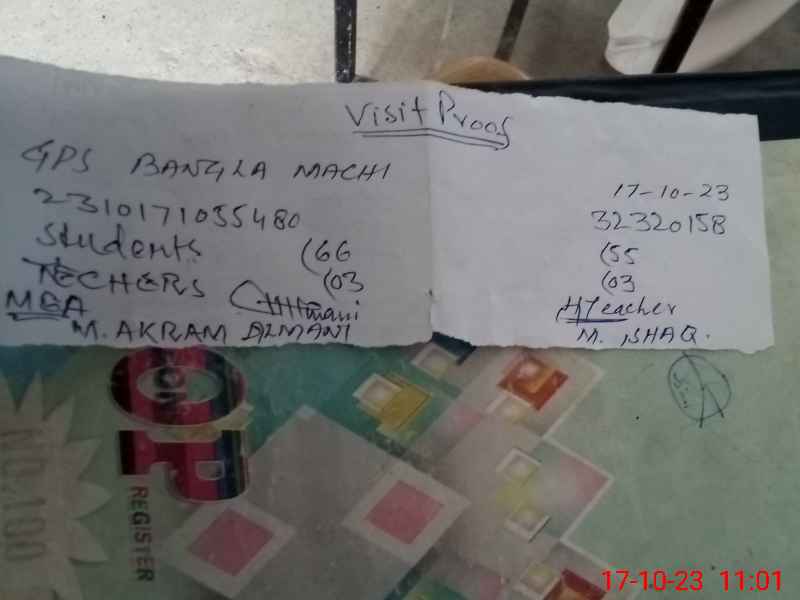 Visit Proof
GPS BANGLA MACHI 17-10-23
2310171055480 32320158
Students (66 (55
TECHERS (03 (03
MEA HTeacher
M. AKRAM ALMANI M. ISHAQ.
TOP
REGISTER
NO.100
17-10-23 11:01